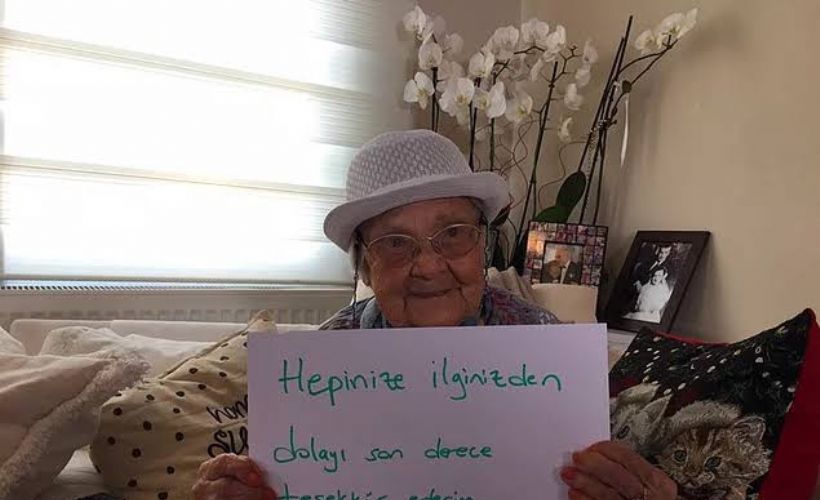 Hepinize ilginizden
dolayı son derece